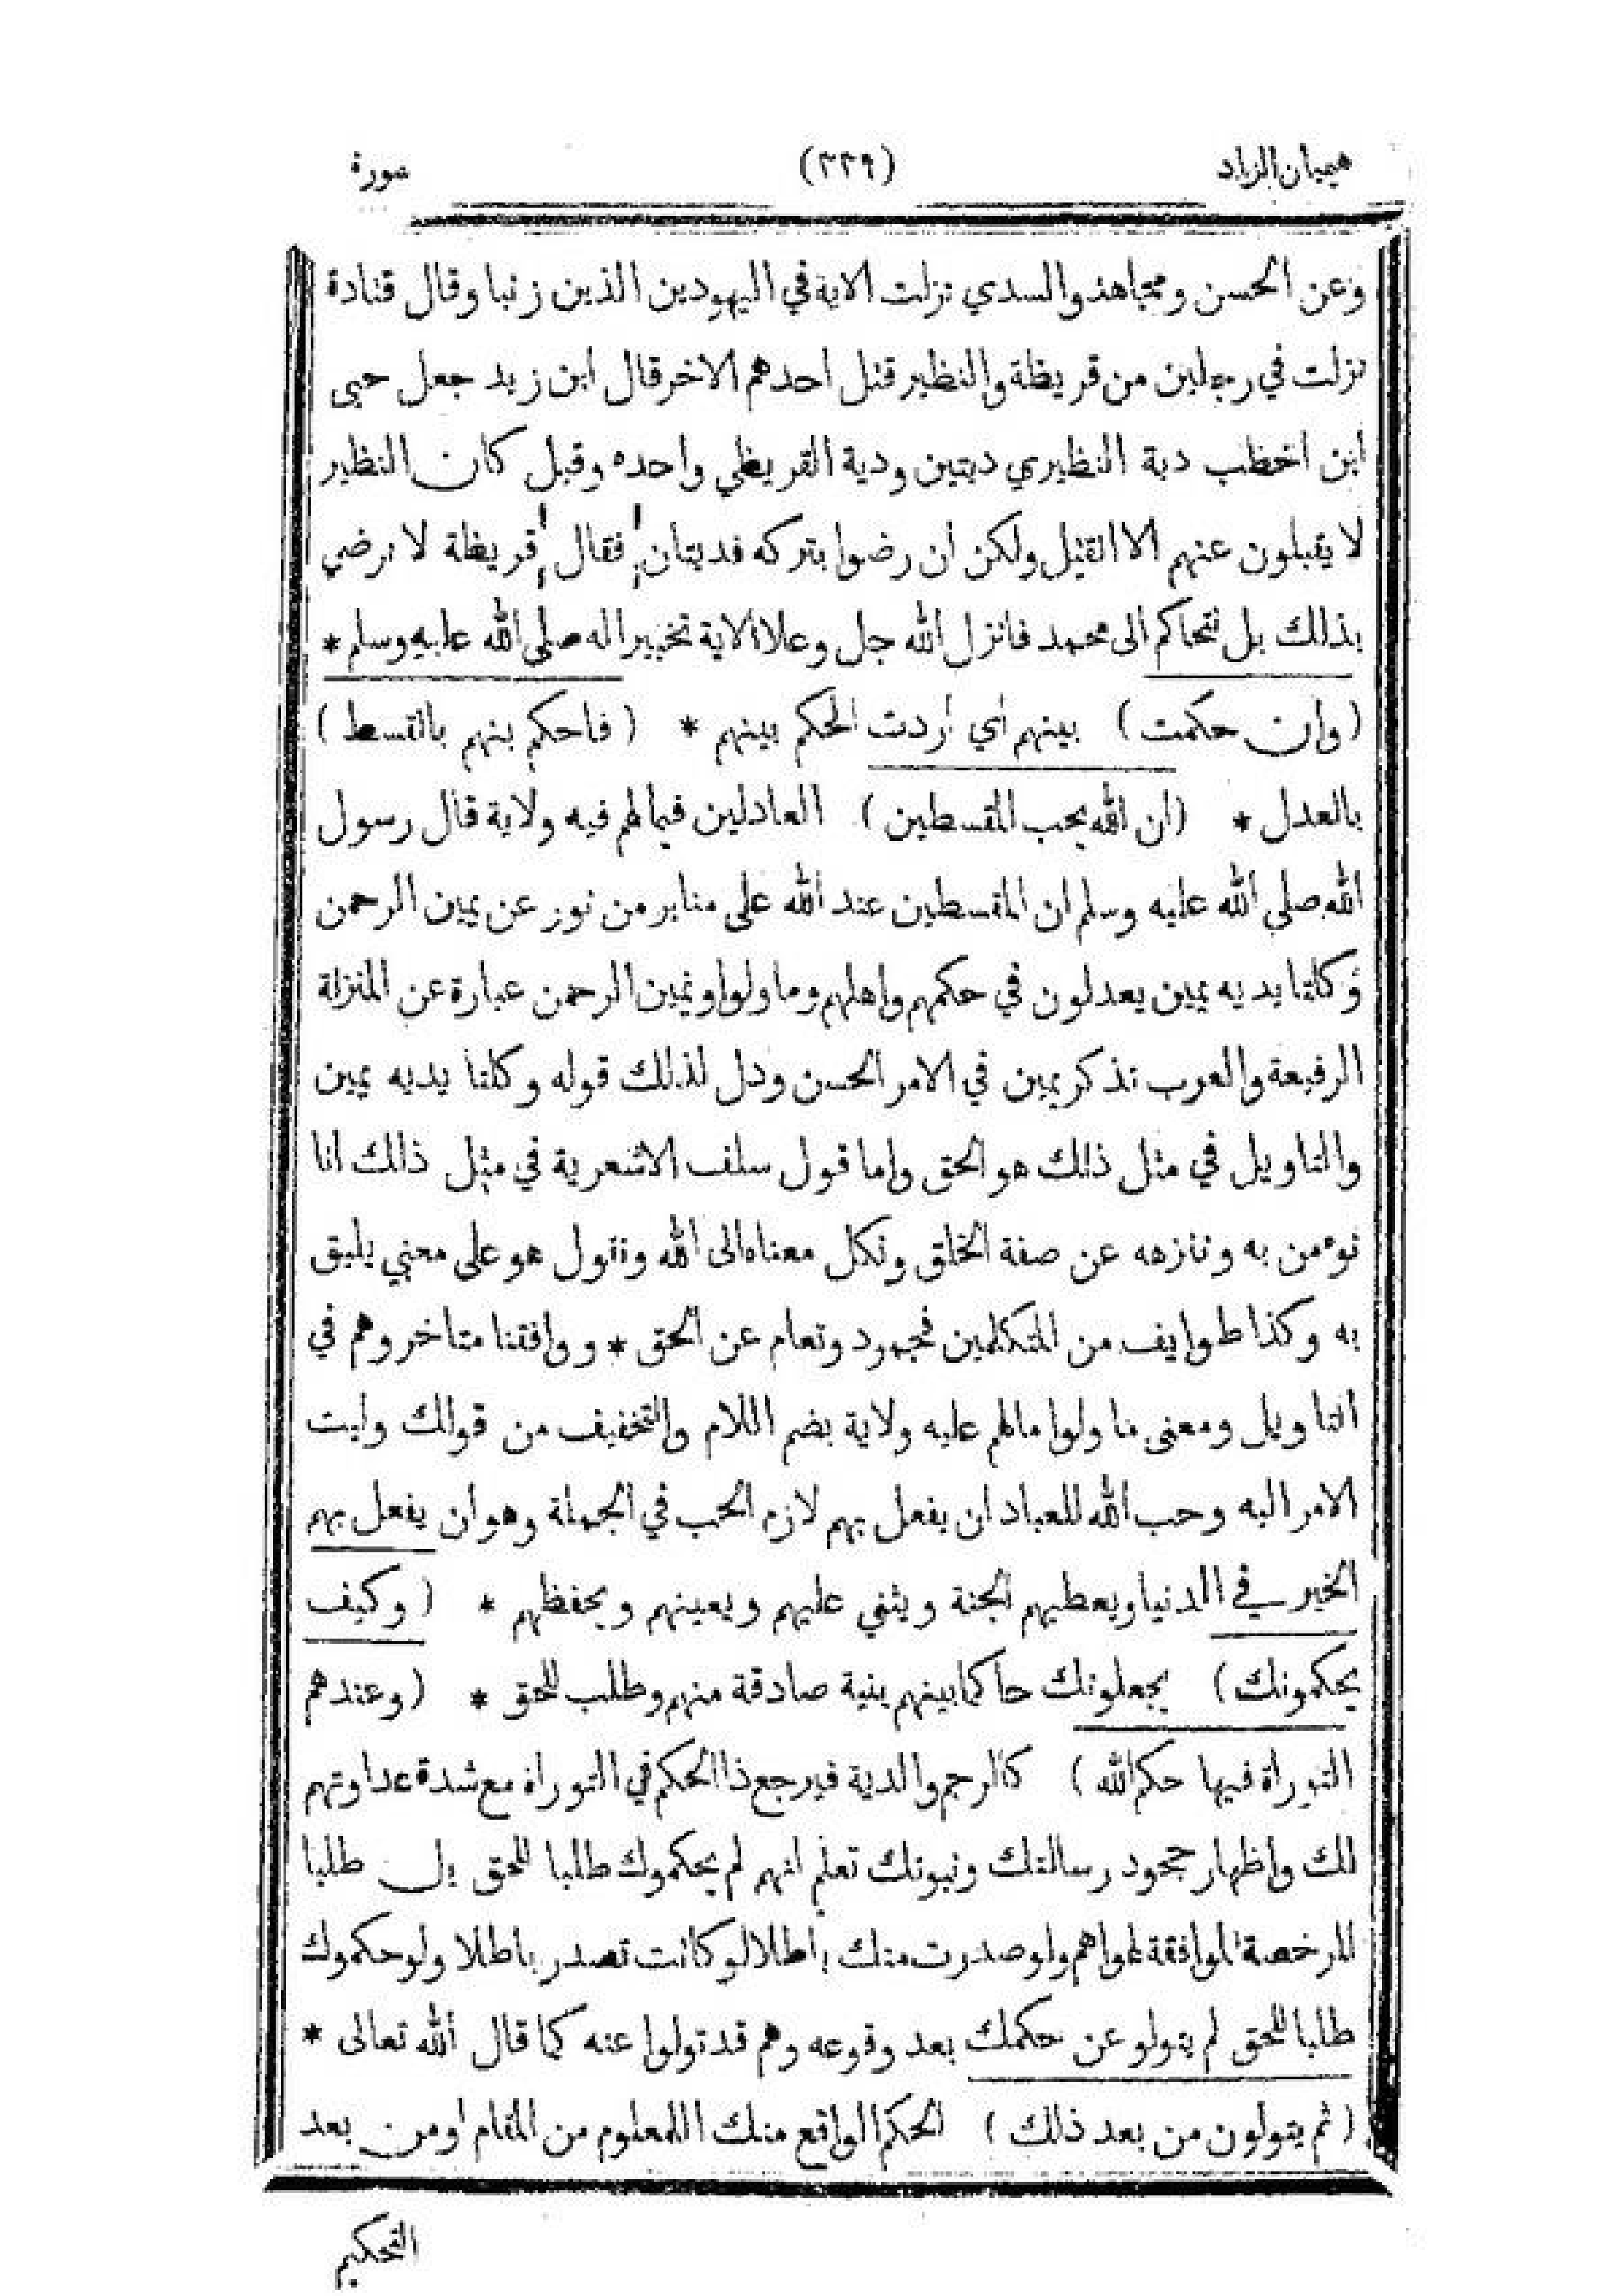 هيميان الزاد (٣٣٩) سورة
وعن الحسن ومجاهد والسدي نزلت الاية في اليهودين الذين زنيا وقال قتادة
نزلت في رجلين من قريظة والنظير قتل احدهم الاخر قال ابن زيد جعل حيى
ابن اخطب دية النظيري ديتين ودية القريظي واحده وقيل كان النظير
لا يقبلون عنهم الا القتيل ولكن ان رضوا بتركه فديتان فقال قريظة لا نرضي
بذلك بل نتحاكم الى محمد فانزل الله جل وعلا الاية تخييرا له صلى الله عليه وسلم *
(وان حكمت) بينهم اي اردت الحكم بينهم * (فاحكم بينهم بالقسط)
بالعدل * (ان الله يحب المقسطين) العادلين فيما لهم فيه ولاية قال رسول
الله صلي الله عليه وسلم ان المقسطين عند الله على منابر من نور عن يمين الرحمن
وكلتا يديه يمين يعدلون في حكمهم واهلهم وما ولوا ويمين الرحمن عبارة عن المنزلة
الرفيعة والعرب تذكر يمين في الامر الحسن ودل لذلك قوله وكلتا يديه يمين
والتاويل في مثل ذلك هو الحق واما قول سلف الاشعرية في مثل ذلك انا
نوءمن به وننزهه عن صفة الخلق ونكل معناه الى الله ونقول هو على معني يليق
به وكذا طوايف من المتكلمين فجمود وتعام عن الحق * ووافقنا متاخروهم في
التاويل ومعنى ما ولوا ما لهم عليه ولاية بضم اللام والتخفيف من قولك وليت
الامر اليه وحب الله للعباد ان يفعل بهم لازم الحب في الجملة وهو ان يفعل بهم
الخير في الدنيا ويعطيهم الجنة ويثني عليهم ويعينهم ويحفظهم * (وكيف
يحكمونك) يجعلونك حاكما بينهم بنية صادقة منهم وطلب للحق * (وعندهم
التوراة فيها حكم الله) كالرجم والدية فيرجع ذا الحكم في التوراة مع شدة عداوتهم
لك واظهار جحود رسالتك ونبوتك تعلم انهم لم يحكموك طلبا للحق بل طلبا
للرخصة الموافقة لهواهم ولو صدرت منك باطلا لو كانت تصدر باطلا ولو حكموك
طلبا للحق لم يتولو عن حكمك بعد وقوعه وهم قد تولوا عنه كما قال الله تعالى *
(ثم يتولون من بعد ذلك) الحكم الواقع منك المعلوم من المقام او من بعد
التحكيم